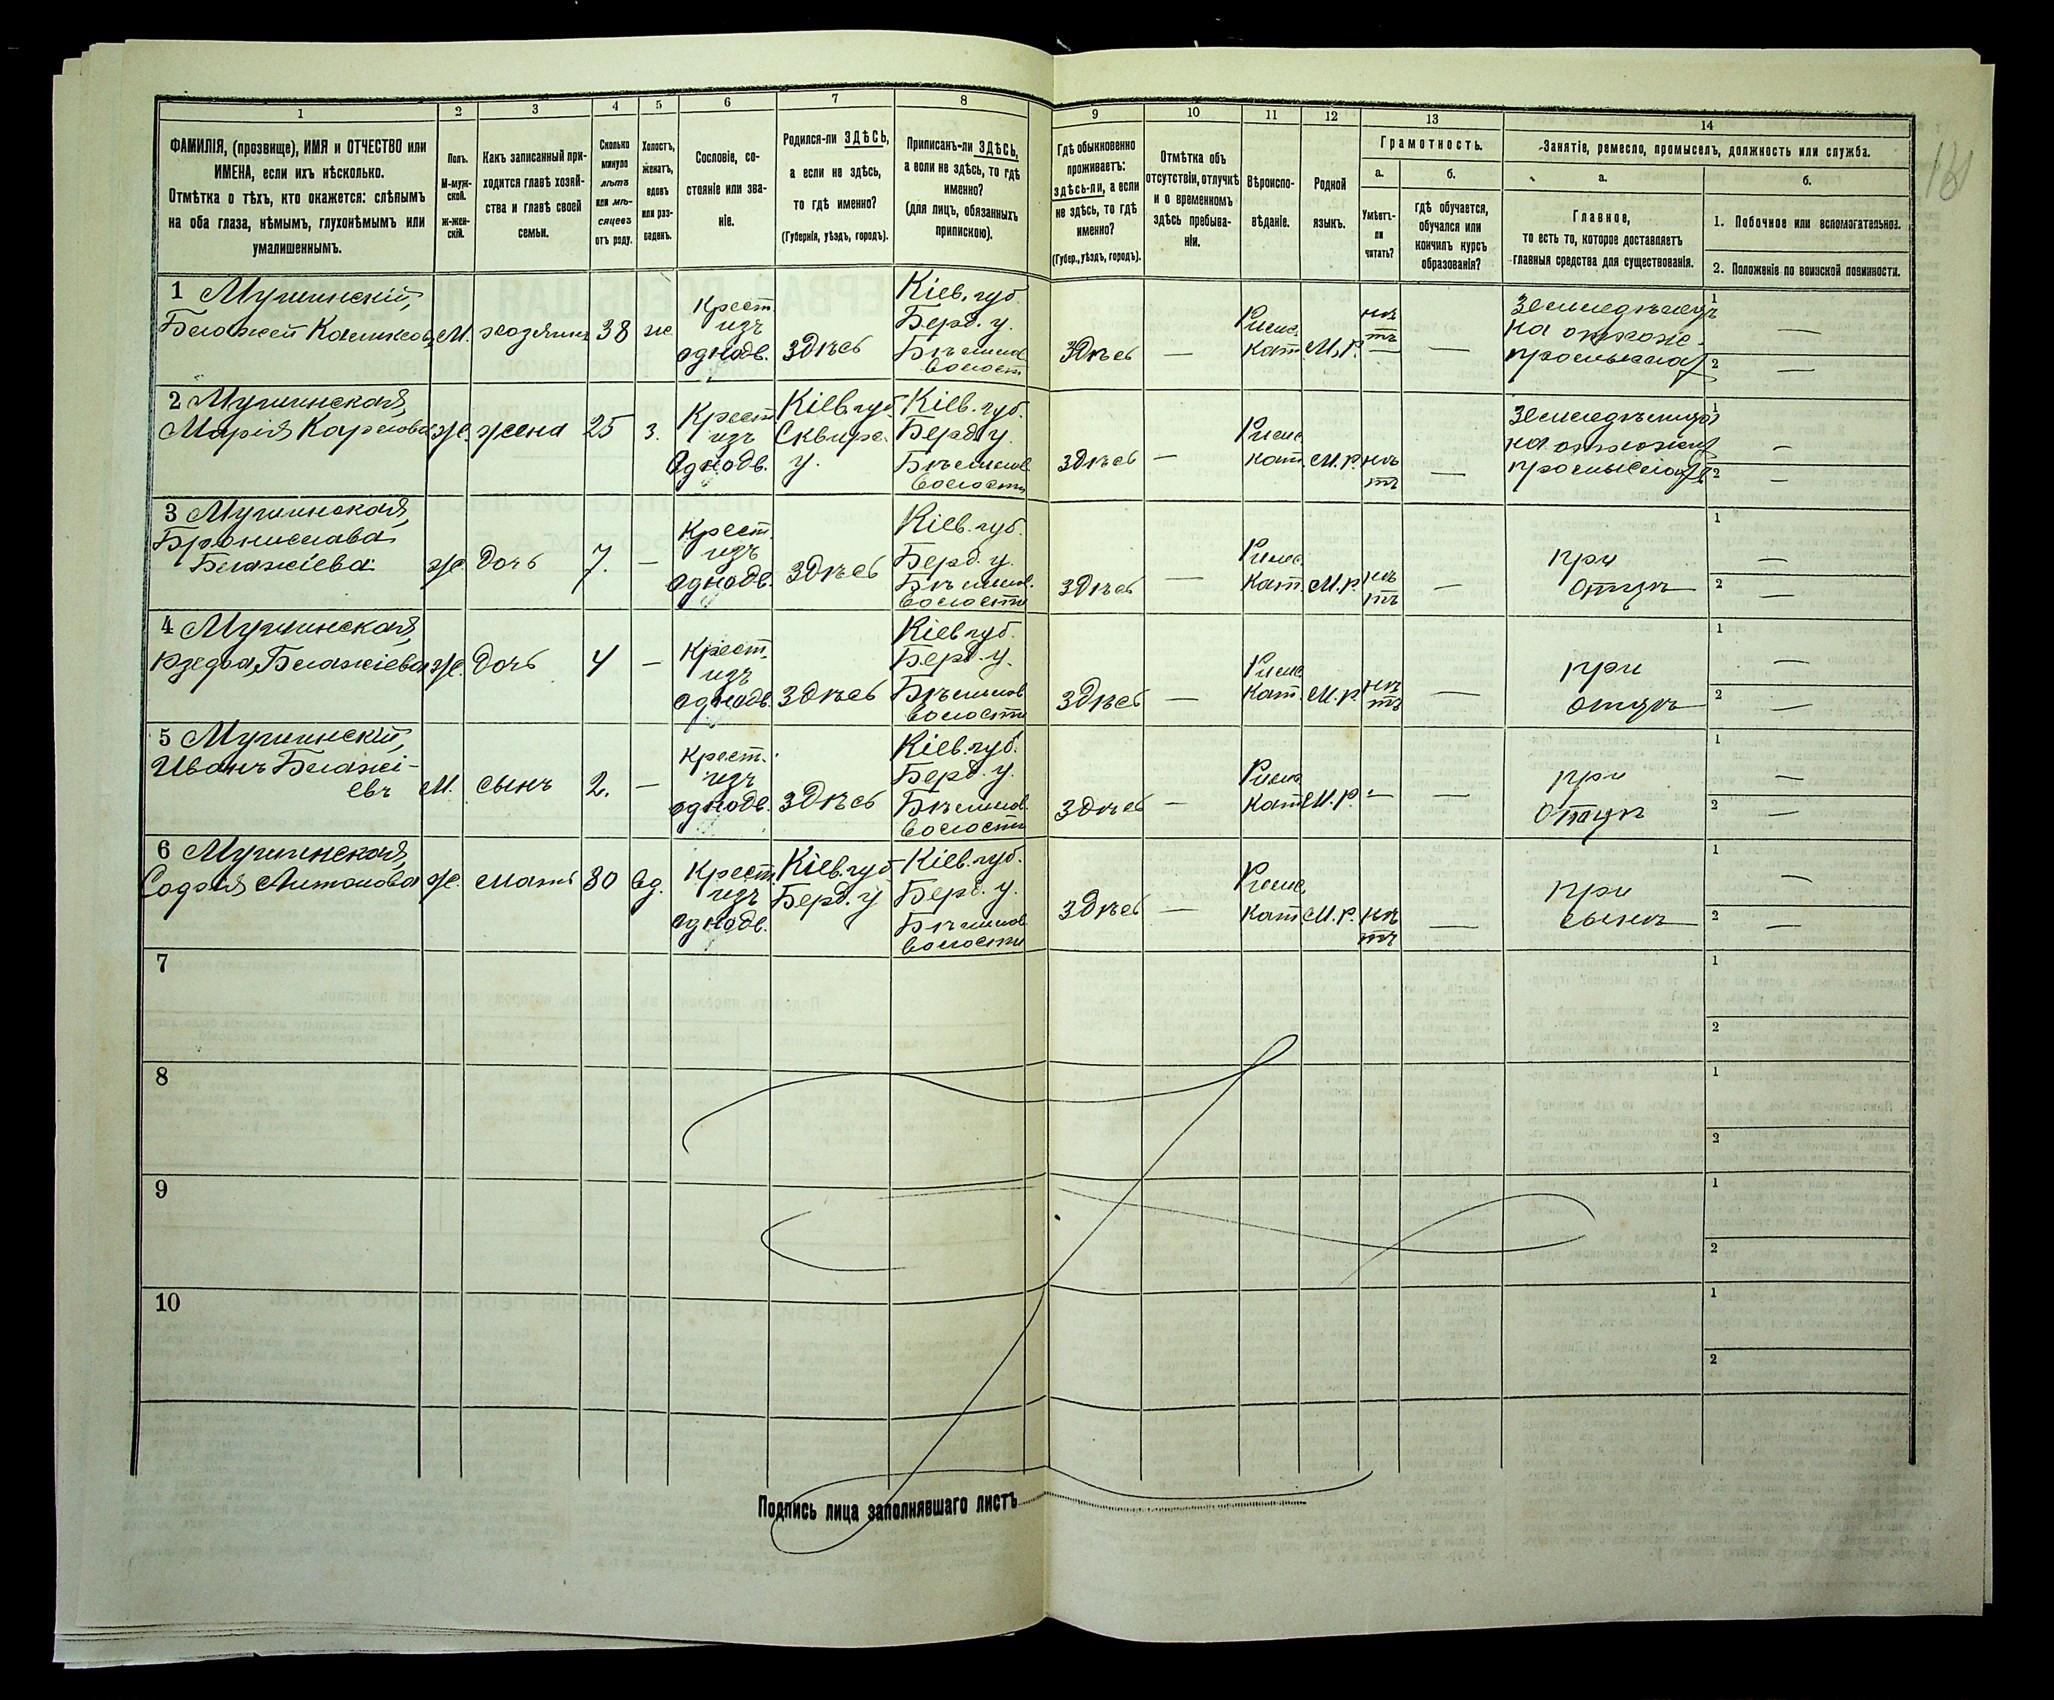 1 2 3 4 5 6 7 8 9 10 11 12 13 14
ФАМИЛІЯ, (прозвище), ИМЯ и ОТЧЕСТВО или
ИМЕНА, если ихъ нѣсколько.
Отмѣтка о тѣхъ, кто окажется: слѣпымъ
на оба глаза, нѣмымъ, глухонѣмымъ или
умалишеннымъ.
Полъ.
М-муж-
ской.
ж-жен-
скій.
Какъ записанный при-
ходится главѣ хозяй-
ства и главѣ своей
семьи.
Сколько
минуло
лѣтъ
или мѣ-
сяцевъ
отъ роду.
Холостъ,
женатъ,
вдовъ
или раз-
веденъ.
Сословіе, со-
стояніе или зва-
ніе.
Родился-ли ЗДѢСЬ,
а если не здѣсь,
то гдѣ именно?
(Губернія, уѣздъ, городъ).
Приписанъ-ли ЗДѢСЬ,
а если не здѣсь, то гдѣ
именно?
(для лицъ, обязанныхъ
припискою).
Гдѣ обыкновенно
проживаетъ:
здѣсь-ли, а если
не здѣсь, то гдѣ
именно?
(Губер., уѣздъ, городъ).
Отмѣтка объ
отсутствіи, отлучкѣ
и о временномъ
здѣсь пребыва-
ніи.
Вѣроиспо-
вѣданіе.
Родной
языкъ.
Грамотность.
а.
Умѣетъ-
ли
читать?
б.
гдѣ обучается,
обучался или
кончилъ курсъ
образованія?
Занятіе, ремесло, промыселъ, должность или служба.
а.
Главное,
то есть то, которое доставляетъ
главныя средства для существованія.
б.
1. Побочное или вспомогательное.
2. Положеніе по воинской повинности.
1
Блажей М. хозяинъ 38 ж.
Крест.
изъ
однодв.
здѣсь
Кіев. губ.
Берд. у.
волост.
здѣсь —
Римс.
Кат. М.Р.
нѣ
тъ
—
1 —
2 —
2
Марія Карлова ж. жена 25 з.
Крест.
изъ
однодв.
Кіев. губ.
Сквирс.
у.
Кіев. губ.
Берд. у.
волости
здѣсь —
Римс.
кат. М.Р.
нѣ
тъ
—
1 —
2 —
3
Бронислава
Блажіева ж. дочь 7. —
Крест.
изъ
однодв.
здѣсь
Кіев. губ.
Берд. у.
волости
здѣсь —
Римс.
Кат. М.Р.
нѣ
тъ
—
при
отцѣ
1 —
2 —
4
Блажіева ж. дочь 4 —
Крест.
изъ
однодв.
здѣсь
Кіев. губ.
Берд. у.
волости
здѣсь —
Римс.
Кат. М.Р.
нѣ
тъ
—
при
отцѣ
1 —
2 —
5
Иванъ Блажі-
евъ М. сынъ 2. —
Крест.
изъ
однодв.
здѣсь
Кіев. губ.
Берд. у.
волости
здѣсь —
Римс.
Кат. М.Р. — —
при
отцѣ
1 —
2 —
6
Софія Антонова ж. мать 80 вд.
Крест.
изъ
однодв.
Кіев. губ.
Берд. у
Кіев. губ.
Берд. у.
волости
здѣсь —
Римс.
Кат. М.Р.
нѣ
тъ
—
при
сынѣ
1 —
2 —
7
1
2
8
1
2
9
1
2
10
1
2
Подпись лица заполнявшаго листъ